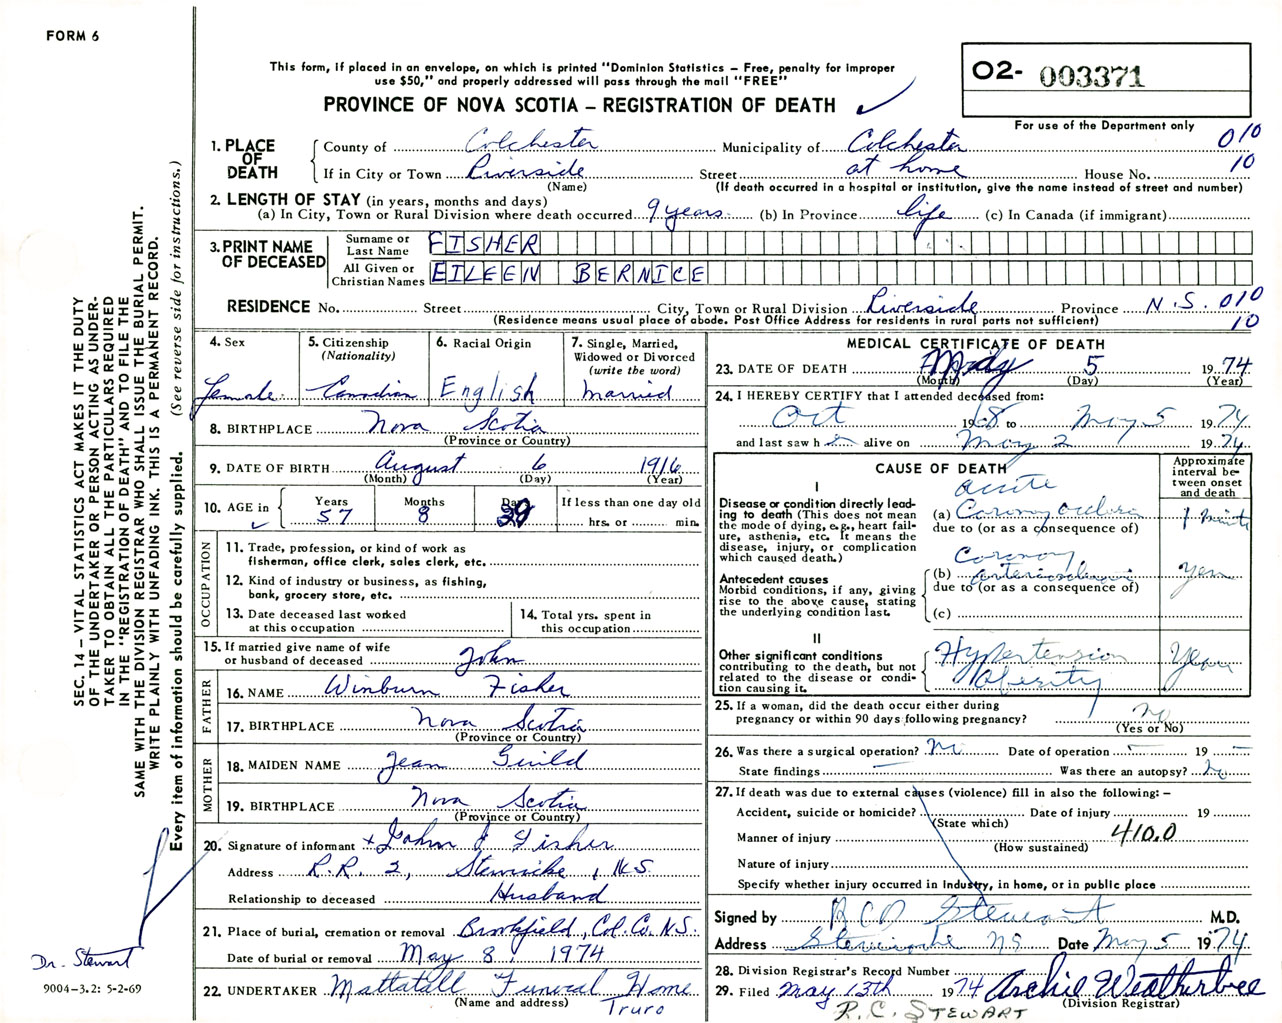 FORM 6
This form, if placed in an envelope, on which is printed "Dominion Statistics – Free, penalty for improper
use $50," and properly addressed will pass through the mail "FREE"
PROVINCE OF NOVA SCOTIA – REGISTRATION OF DEATH
O2- 003371
For use of the Department only
1. PLACE OF DEATH
County of Colchester Municipality of Colchester 010
If in City or Town Riverside Street at home House No. 10
(Name) (If death occurred in a hospital or institution, give the name instead of street and number)
2. LENGTH OF STAY (in years, months and days)
(a) In City, Town or Rural Division where death occurred 9 years (b) In Province life (c) In Canada (if immigrant)
3. PRINT NAME OF DECEASED
Surname or Last Name FISHER
All Given or Christian Names EILEEN BERNICE
RESIDENCE No. Street City, Town or Rural Division Riverside Province N.S. 010
(Residence means usual place of abode. Post Office Address for residents in rural parts not sufficient) 10
4. Sex
Female
5. Citizenship
(Nationality)
Canadian
6. Racial Origin
English
7. Single, Married,
Widowed or Divorced
(write the word)
Married
8. BIRTHPLACE Nova Scotia
(Province or Country)
9. DATE OF BIRTH August 6 1916
(Month) (Day) (Year)
10. AGE in Years 57 Months 8 Days 29
If less than one day old
hrs. or min.
OCCUPATION
11. Trade, profession, or kind of work as
fisherman, office clerk, sales clerk, etc.
12. Kind of industry or business, as fishing,
bank, grocery store, etc.
13. Date deceased last worked
at this occupation
14. Total yrs. spent in
this occupation
15. If married give name of wife
or husband of deceased John
FATHER
16. NAME Winburn Fisher
17. BIRTHPLACE Nova Scotia
(Province or Country)
MOTHER
18. MAIDEN NAME Jean Guild
19. BIRTHPLACE Nova Scotia
(Province or Country)
20. Signature of informant x John J Fisher
Address R.R. 2, Stewiacke, N.S.
Relationship to deceased Husband
21. Place of burial, cremation or removal Brookfield, Col. Co. N.S.
Date of burial or removal May 8, 1974
22. UNDERTAKER Mattatall Funeral Home
(Name and address) Truro
MEDICAL CERTIFICATE OF DEATH
23. DATE OF DEATH May 5 1974
(Month) (Day) (Year)
24. I HEREBY CERTIFY that I attended deceased from:
Oct 1968 to May 5 1974
and last saw h alive on May 2 1974
CAUSE OF DEATH
Approximate
interval be-
tween onset
and death
I
Disease or condition directly lead-
ing to death (This does not
mean the mode of dying, e.g., heart fail-
ure, asthenia, etc. It means the
disease, injury, or complication
which caused death.)
Acute
(a) Coronary 1 minute
due to (or as a consequence of)
Antecedent causes
Morbid conditions, if any, giving
rise to the above cause, stating
the underlying condition last.
Coronary
(b) arteriosclerosis years
due to (or as a consequence of)
(c)
II
Other significant conditions
contributing to the death, but not
related to the disease or condi-
tion causing it.
Hypertension years
Obesity
25. If a woman, did the death occur either during
pregnancy or within 90 days following pregnancy? no
(Yes or No)
26. Was there a surgical operation? No Date of operation – 19 –
State findings Was there an autopsy? No
27. If death was due to external causes (violence) fill in also the following: –
Accident, suicide or homicide? Date of injury 19
(State which)
Manner of injury 410.0
(How sustained)
Nature of injury
Specify whether injury occurred in Industry, in home, or in public place
Signed by R C D Stewart M.D.
Address Stewiacke NS Date May 5 1974
28. Division Registrar's Record Number
29. Filed May 13th 1974 Archie Weatherbee
(Division Registrar)
R.C. STEWART
SEC. 14 – VITAL STATISTICS ACT MAKES IT THE DUTY
OF THE UNDERTAKER OR PERSON ACTING AS UNDER-
TAKER TO OBTAIN ALL THE PARTICULARS REQUIRED
IN THE "REGISTRATION OF DEATH" AND TO FILE THE
SAME WITH THE DIVISION REGISTRAR WHO SHALL ISSUE THE BURIAL PERMIT.
WRITE PLAINLY WITH UNFADING INK. THIS IS A PERMANENT RECORD.
Every item of information should be carefully supplied. (See reverse side for instructions.)
Dr. Stewart
9004-3.2: 5-2-69